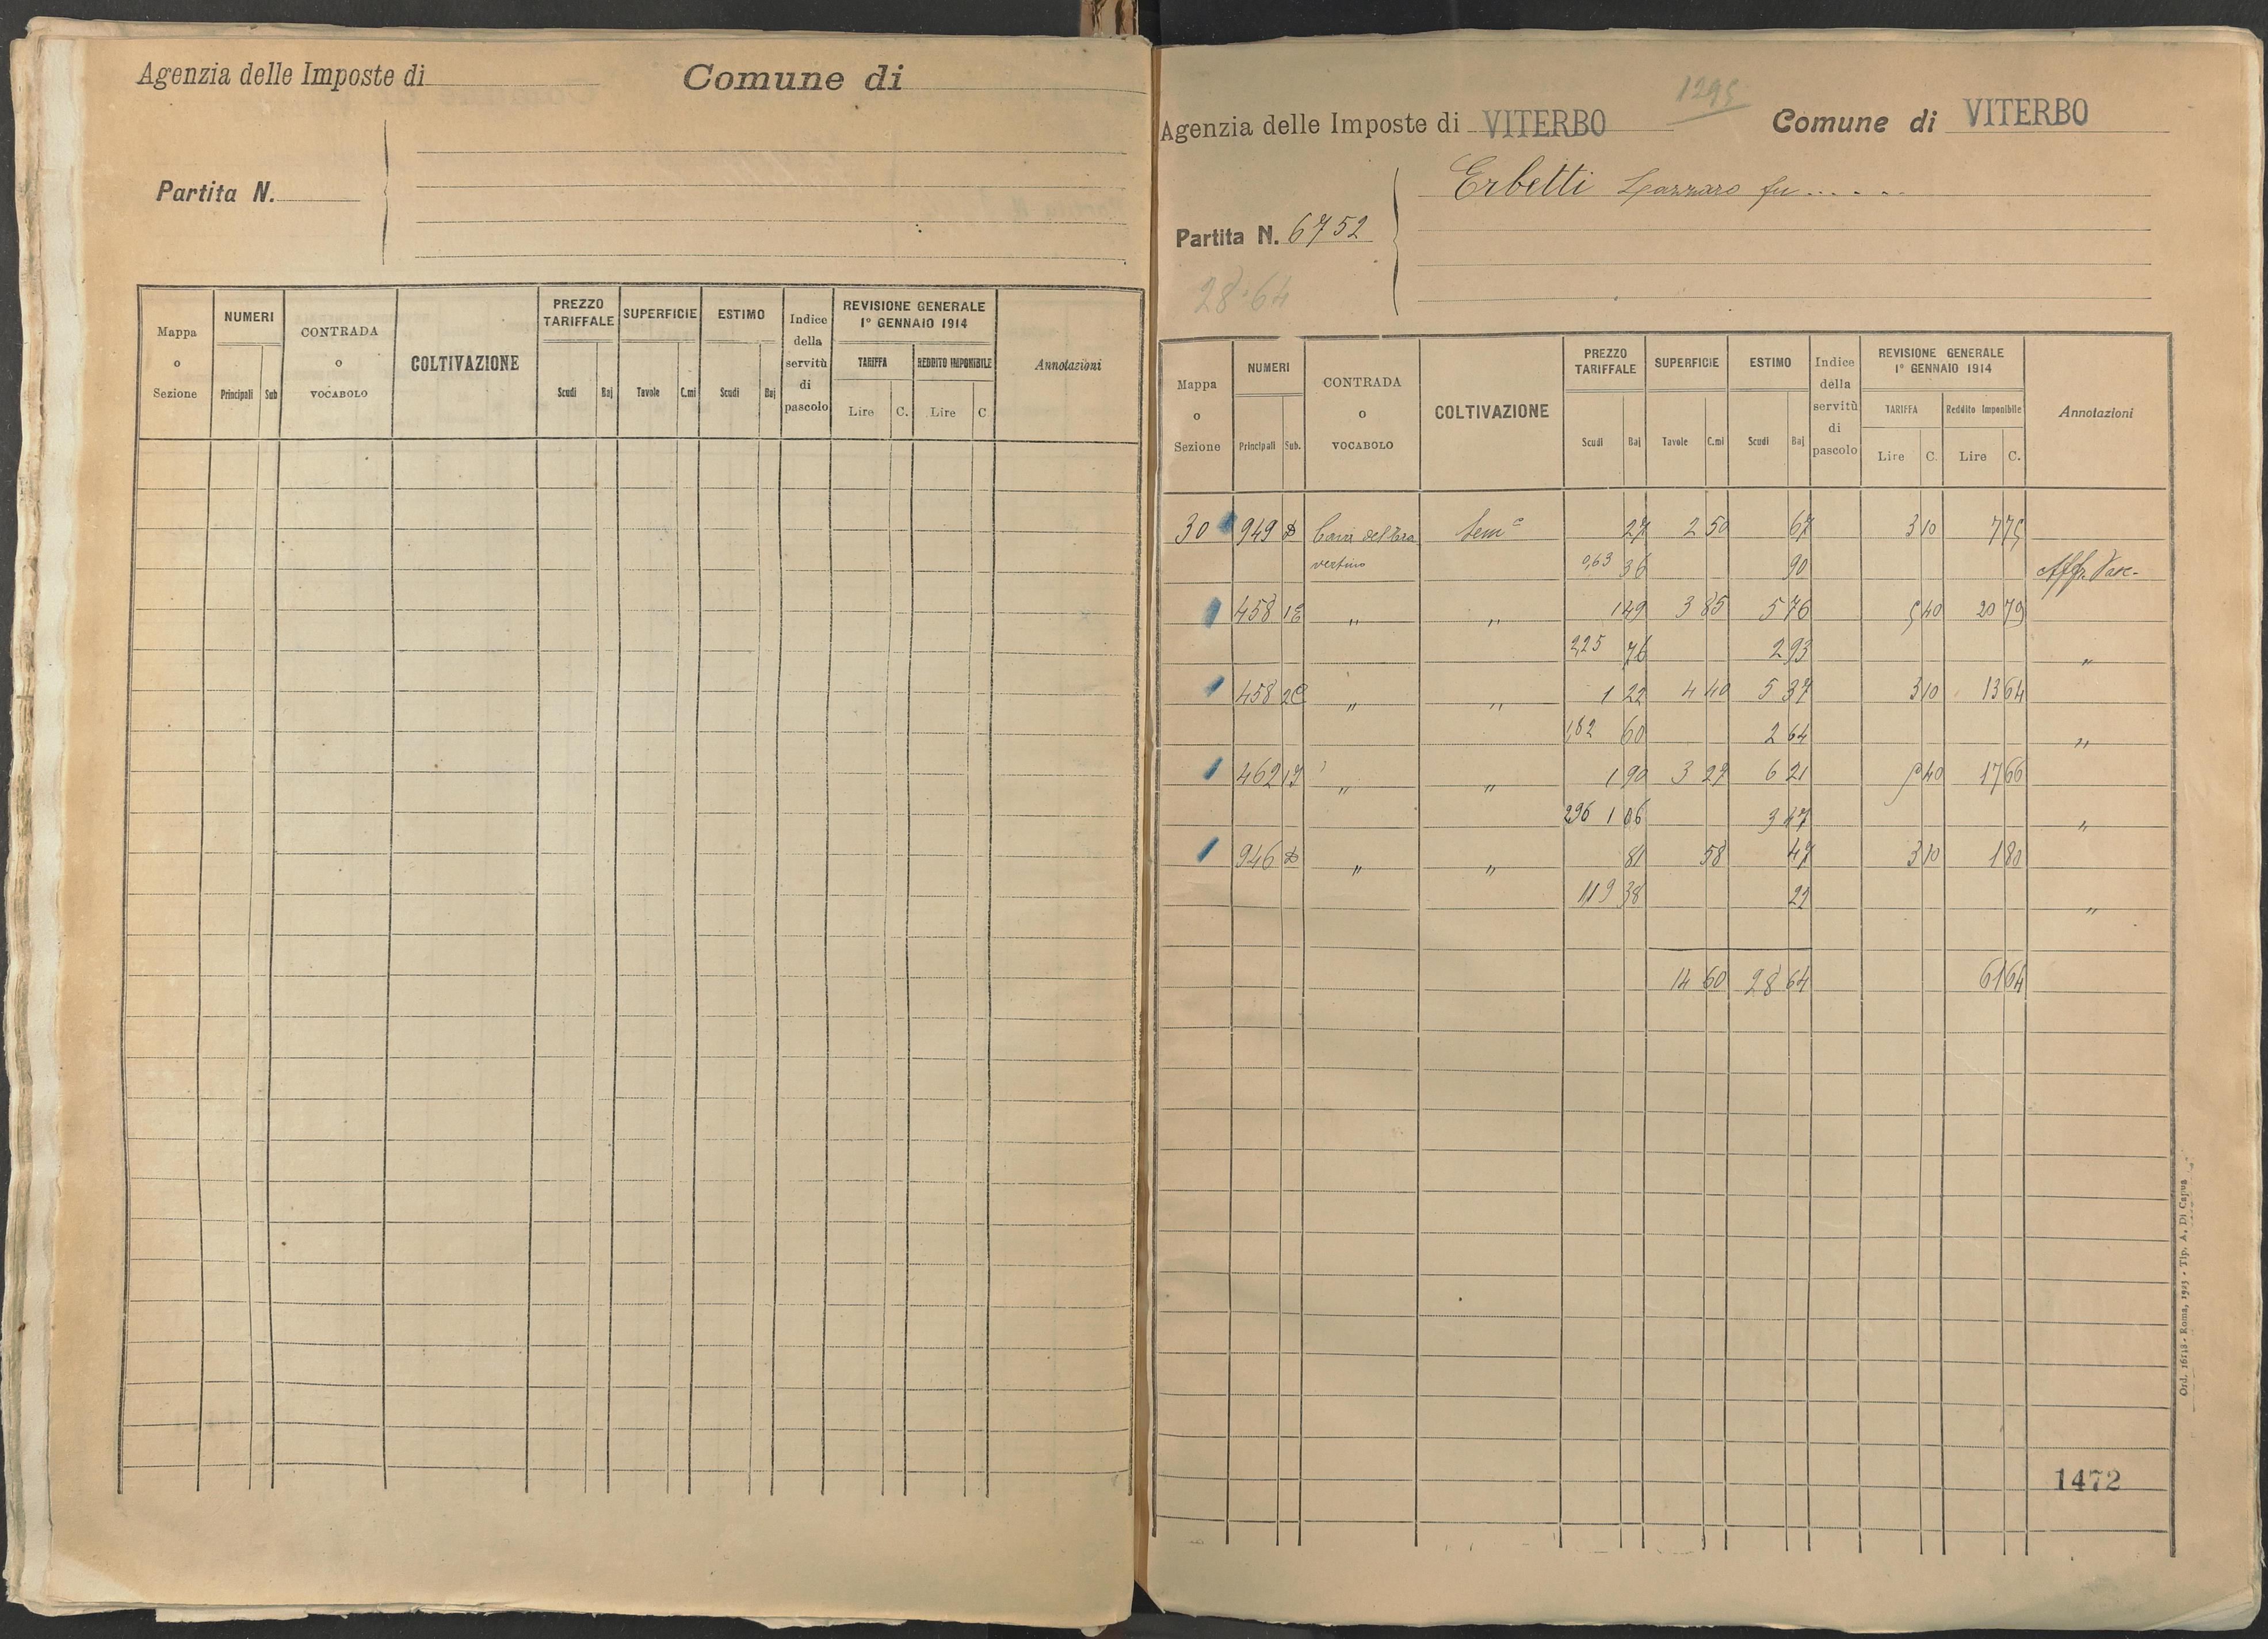 Agenzia delle Imposte di Comune di
Partita N.
Mappa o Sezione
NUMERI
Principali Sub
CONTRADA o VOCABOLO
COLTIVAZIONE
PREZZO TARIFFALE
Scudi Baj
SUPERFICIE
Tavole C.mi
ESTIMO
Scudi Baj
Indice della servitù di pascolo
REVISIONE GENERALE
1° GENNAIO 1914
TARIFFA REDDITO IMPONIBILE
Lire C. Lire C.
Annotazioni
1295
Agenzia delle Imposte di VITERBO Comune di VITERBO
Erbetti Lazzaro fu.....
Partita N. 6752
28.64
Mappa o Sezione
NUMERI
Principali Sub.
CONTRADA o VOCABOLO
COLTIVAZIONE
PREZZO TARIFFALE
Scudi Baj
SUPERFICIE
Tavole C.mi
ESTIMO
Scudi Baj
Indice della servitù di pascolo
REVISIONE GENERALE
1° GENNAIO 1914
TARIFFA Reddito Imponibile
Lire C. Lire C.
Annotazioni
30 949 27 2 50 67 3 10 7 75
vertino 0,63 36 90
458 1 " " 1 49 3 85 5 76 5 40 20 79
2,25 76 2 93 "
458 2 " " 1 22 4 40 5 37 3 10 13 64
1,82 60 2 64 "
462 " " 1 90 3 27 6 21 5 40 17 66
2,96 1 06 3 47 "
946 " " 81 58 47 3 10 1 80
1,19 38 22 "
14 60 28 64 61 64
1472
Ord. 16118 - Roma, 1923 - Tip. A. Di Capua